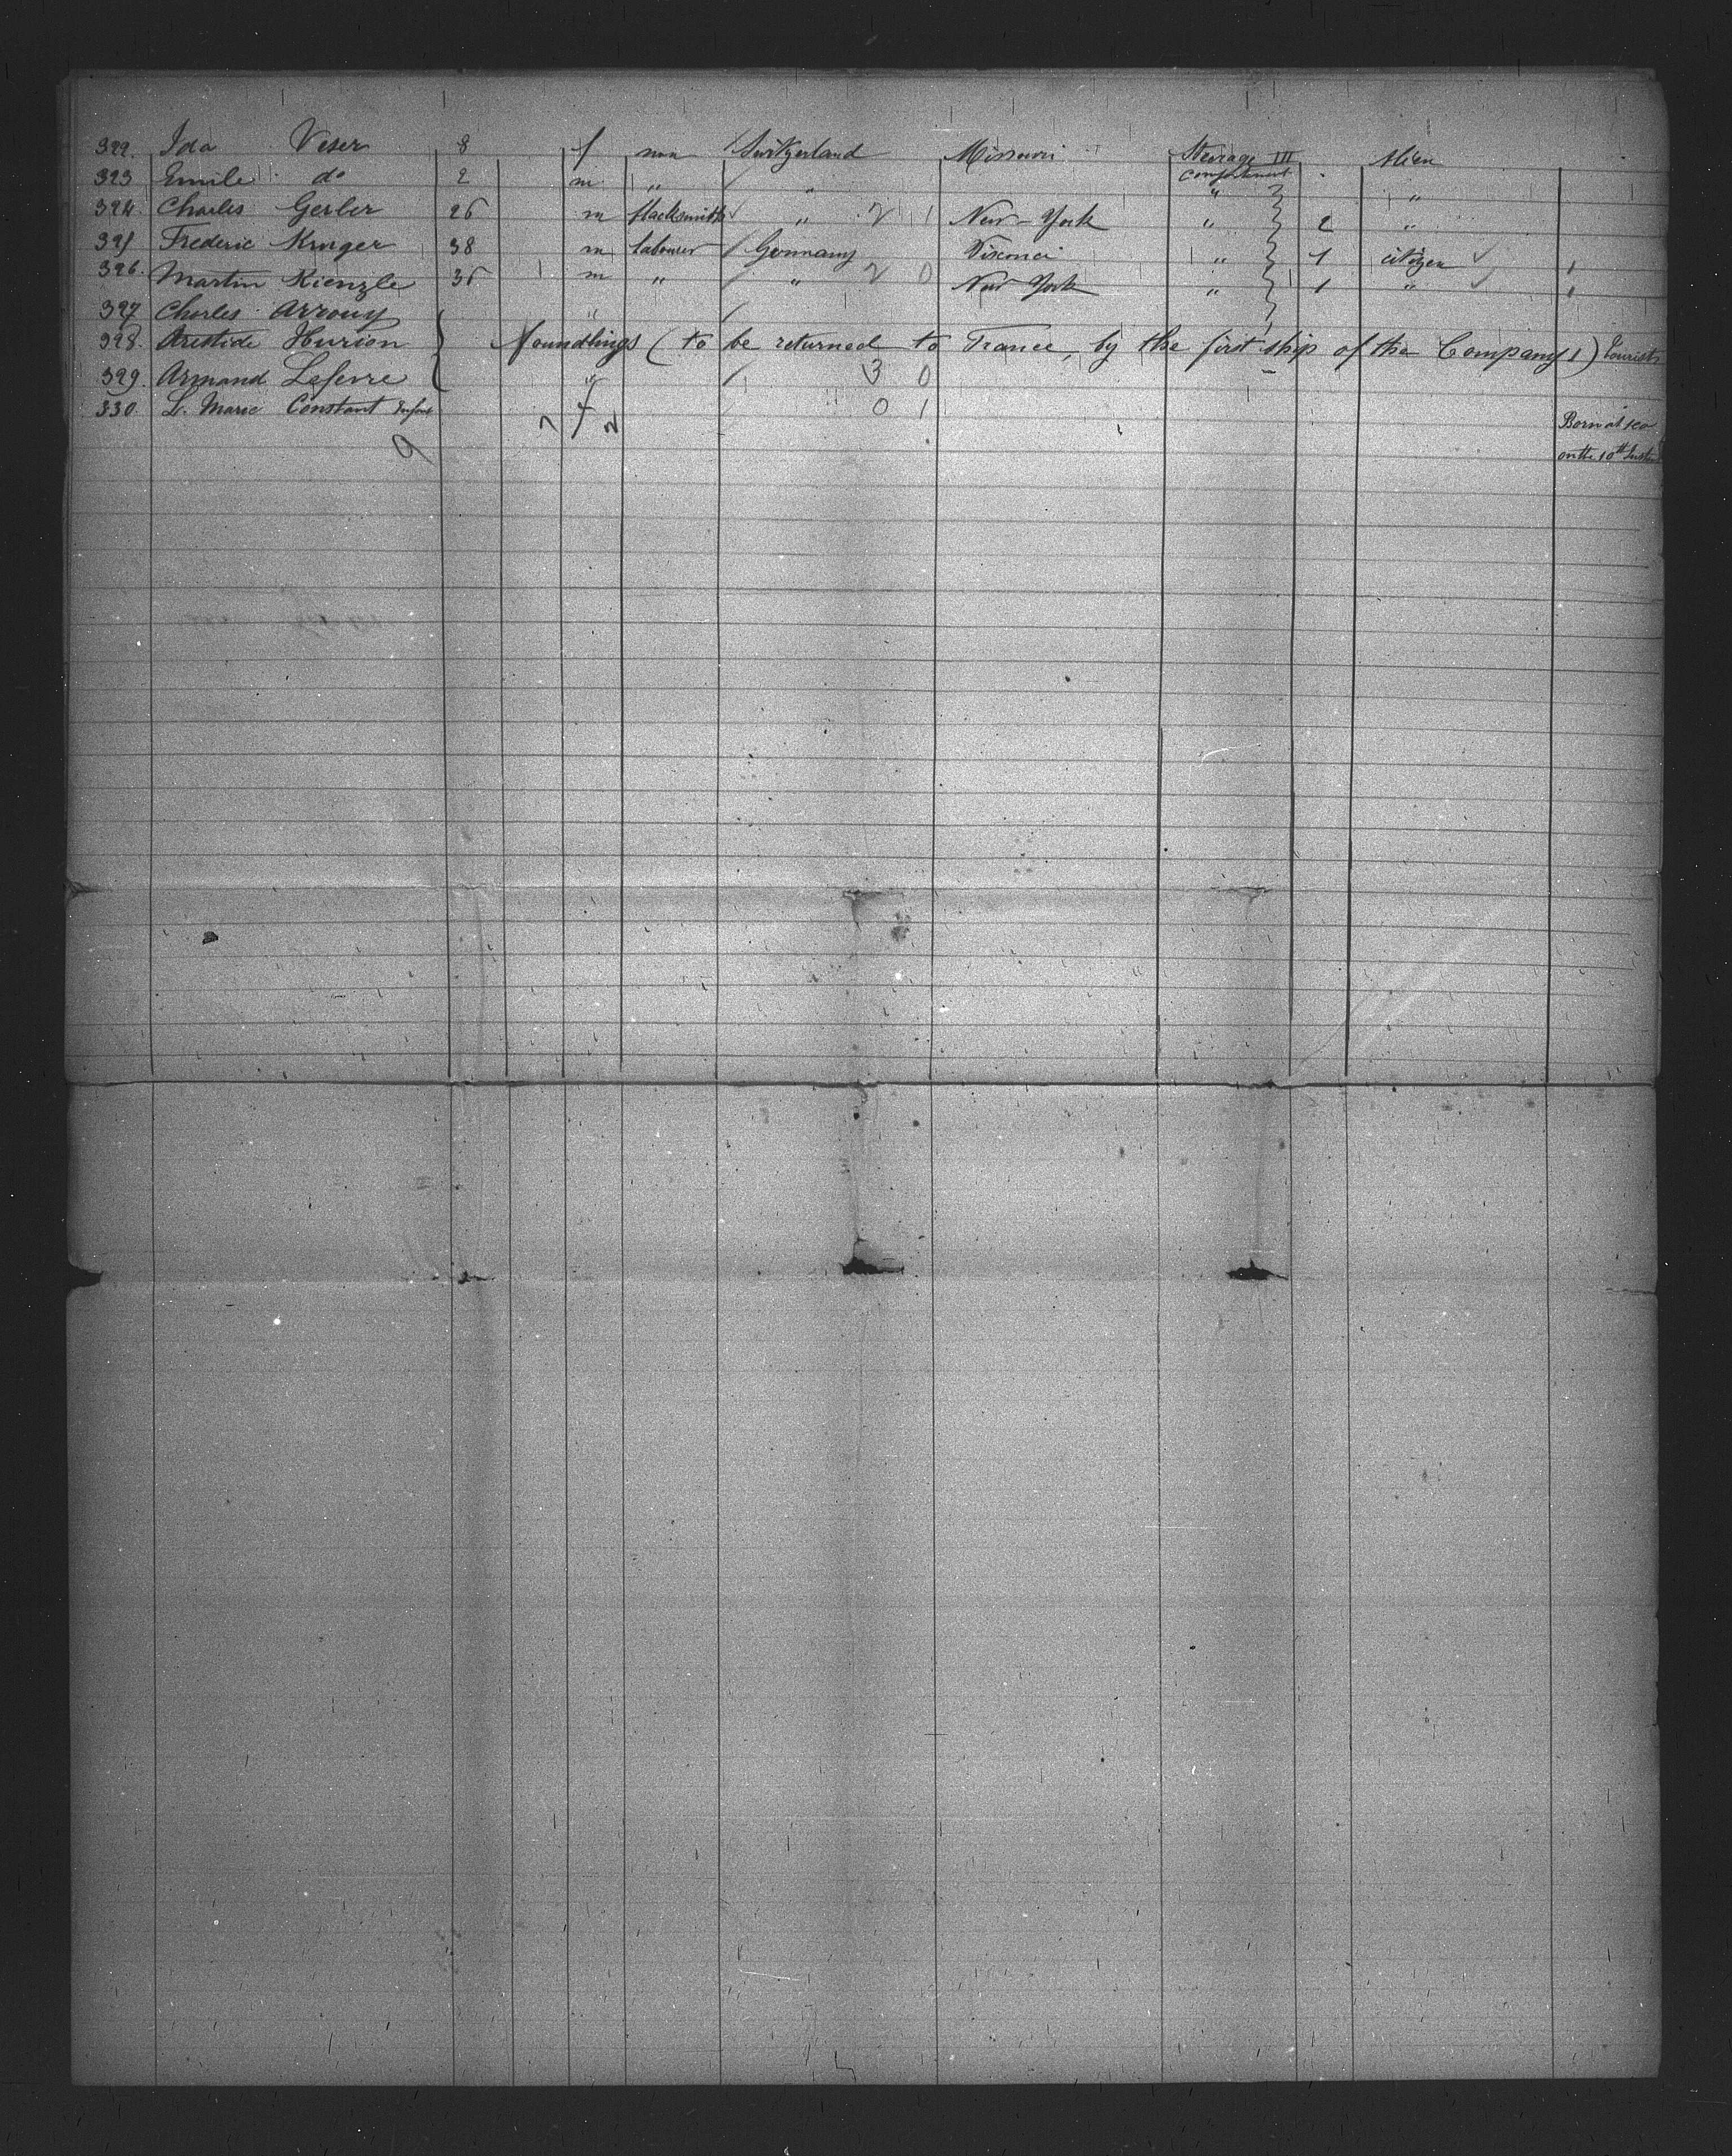 322. Ida Veser 8 f non Switzerland Missouri Steerage III compartment Alien
323 Emile do 2 m " " " "
324. Charles Gerber 26 m blacksmith " 2 1 New-York " 2 "
325 Frederic Kruger 38 m labourer Germany " 1 citizen 1
326. Martin Kienzle 36 m " " 2 0 New York " 1 " 1
327 Charles Arrouy "
328. Aristide Hurion Foundlings (to be returned to France, by the first ship of the Company)
329. Armand Lefevre " 3 0
330. L. Marie Constant Infant f 0 1 Born at sea
7 2
9 on the 10th